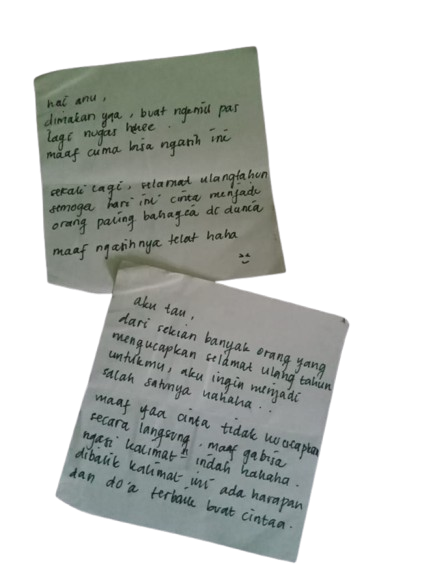 hai anu,
dimakan yaa, buat ngemil pas
lagi nugas hehee.
maaf cuma bisa ngasih ini
sekali lagi, selamat ulangtahun
semoga hari ini cinta menjadi
orang paling bahagia di dunia
maaf ngasihnya telat haha
aku tau,
dari sekian banyak orang yang
mengucapkan selamat ulang tahun
untukmu, aku ingin menjadi
salah satunya hahaha..
maaf yaa cinta tidak
secara langsung. maaf gabisa
ngasi kalimat" indah hahaha.
dibalik kalimat ini ada harapan
dan do'a terbaik buat cintaa.